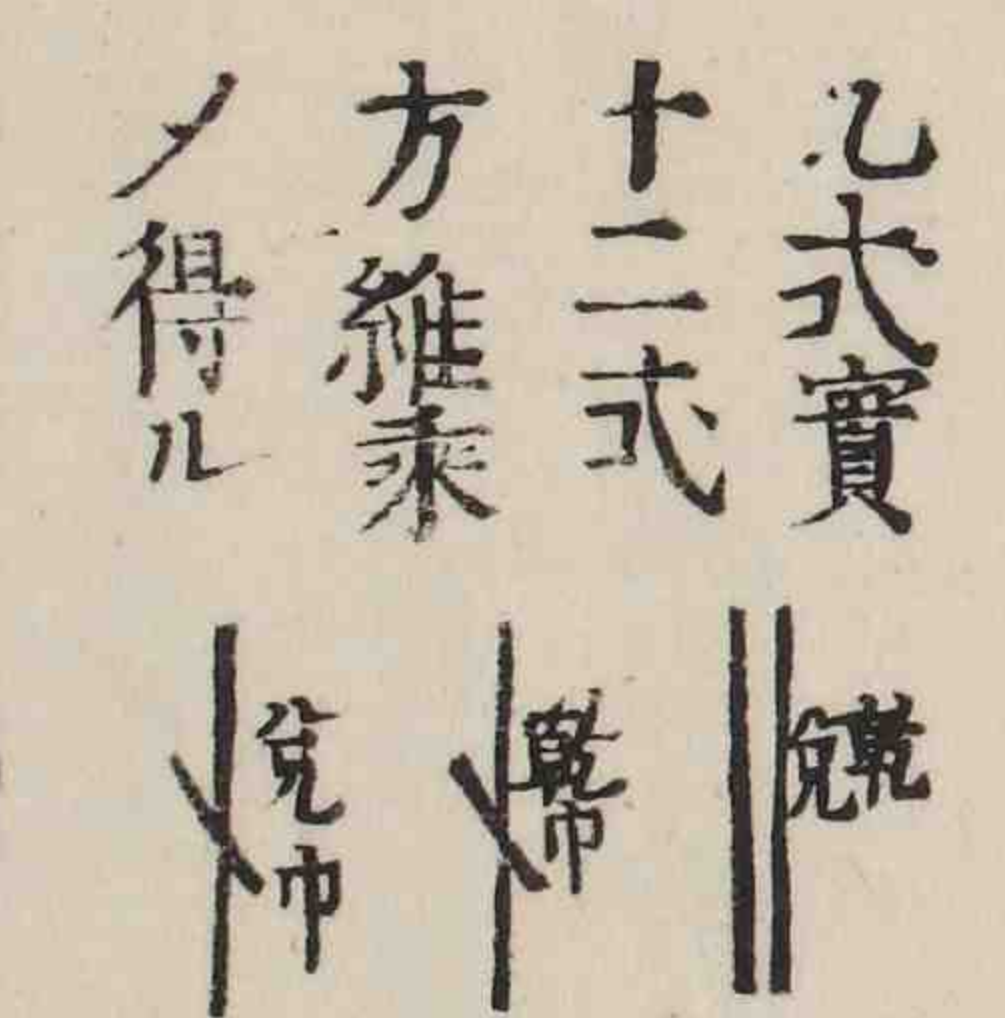 乙式實
十二式
方維乘
ノ得ル
乾兌
乾巾
兌巾